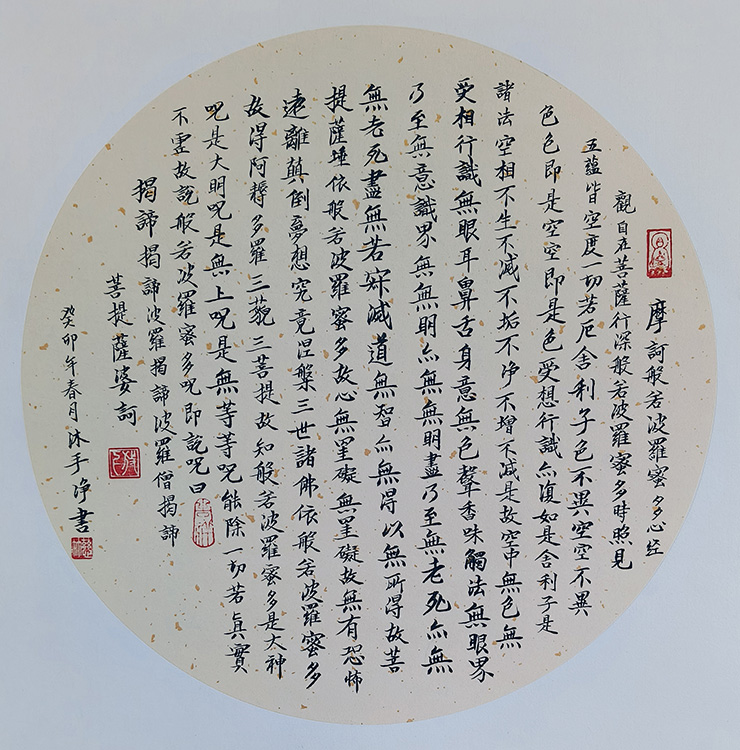 摩訶般若波羅蜜多心经
觀自在菩薩行深般若波羅蜜多時照見
五蘊皆空度一切若厄舍利子色不異空空不異
色色即是空空即是色受想行識亦復如是舍利子是
諸法空相不生不减不垢不净不增不减是故空中無色無
受相行識無眼耳鼻舌身意無色聲香味觸法無眼界
乃至無意識界無無明亦無無明盡乃至無老死亦無
無老死盡無若寂减道無智亦無得以無所得故菩
提薩埵依般若波羅蜜多故心無罣礙無罣礙故無有恐怖
遠離顛倒夢想究竟涅槃三世諸佛依般若波羅蜜多
故得阿耨多羅三藐三菩提故知般若波羅蜜多是大神
呪是大明呪是無上呪是無等等呪能除一切若真實
不虛故說般若波羅蜜多呪即說呪曰
揭諦揭諦波羅揭諦波羅僧揭諦
菩提薩婆訶
癸卯年春月沐手净書